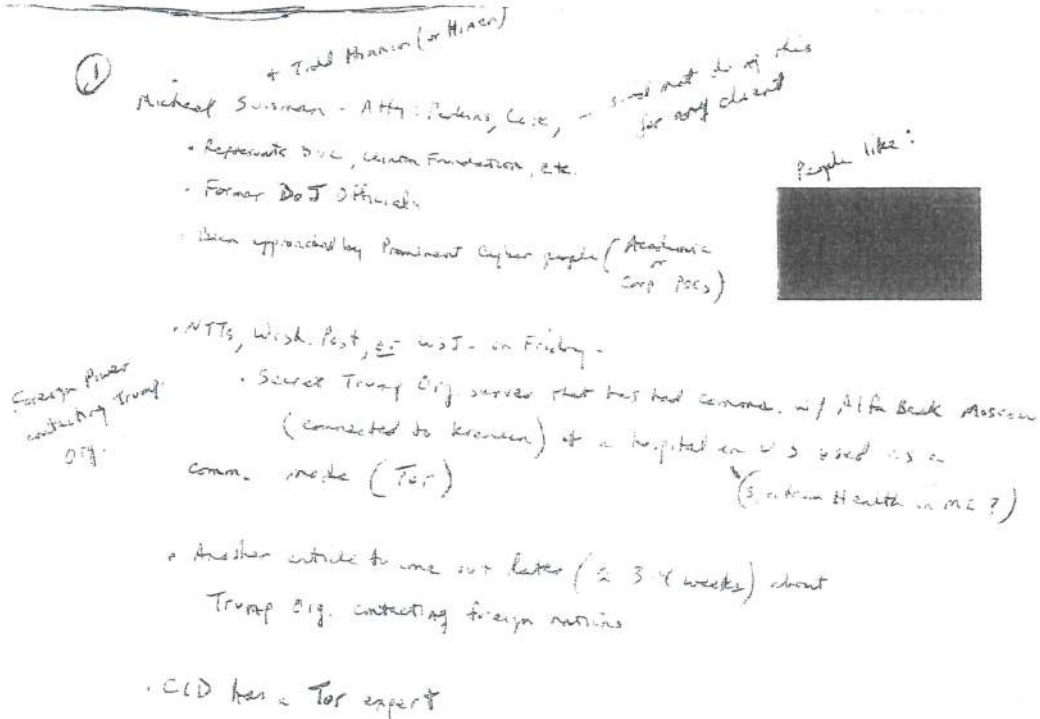 ①
+ Todd (or Himen)
Michael Susman - Atty: Perkins, Coie, - said not do of this
for any client
• Represents DNC, Clinton Foundation, etc.
People like:
• Former DoJ Official
• Been approached by Prominent Cyber people (Academic
or
Corp POCs)
• NYTs, Wash. Post, or WSJ - on Friday -
Foreign Power
contacting Trump
Org.
• Secret Trump Org. server that has had comms. w/ Alfa Bank Moscow
(connected to Kremlin) & a hospital in US used as a
comm. node (Tor)
(Health in MI?)
• Another article to come out later (≈ 3-4 weeks) about
Trump Org. contacting foreign nations
• CID has a Tor expert